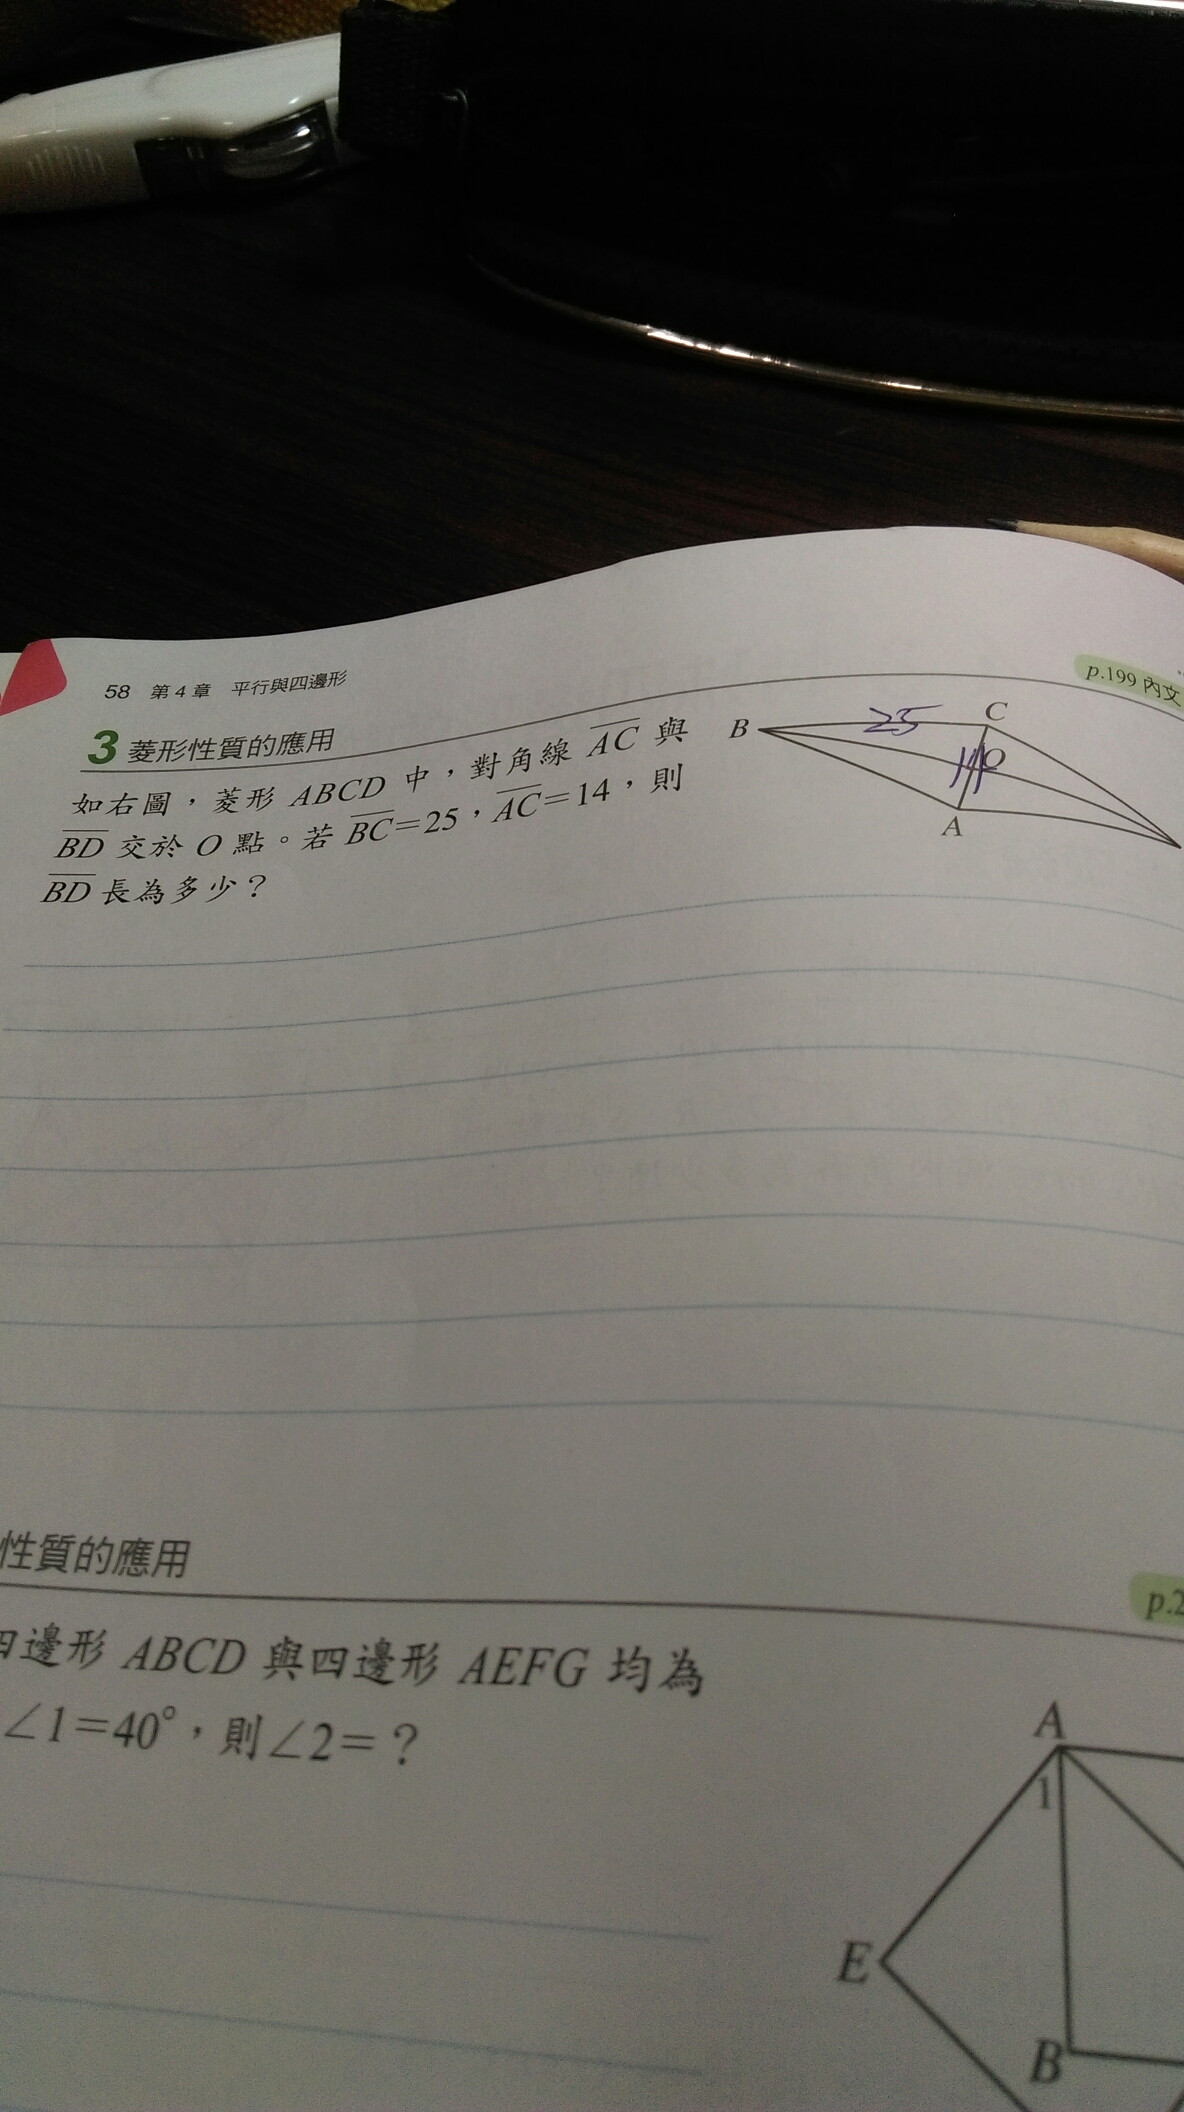 58 第4章 平行與四邊形
p.199 內文
3 菱形性質的應用
如右圖，菱形 ABCD 中，對角線 AC 與
BD 交於 O 點。若 BC=25，AC=14，則
BD 長為多少？
B
25
C
14
O
A
性質的應用
p.2
四邊形 ABCD 與四邊形 AEFG 均為
∠1=40°，則∠2=？
A
1
E
B